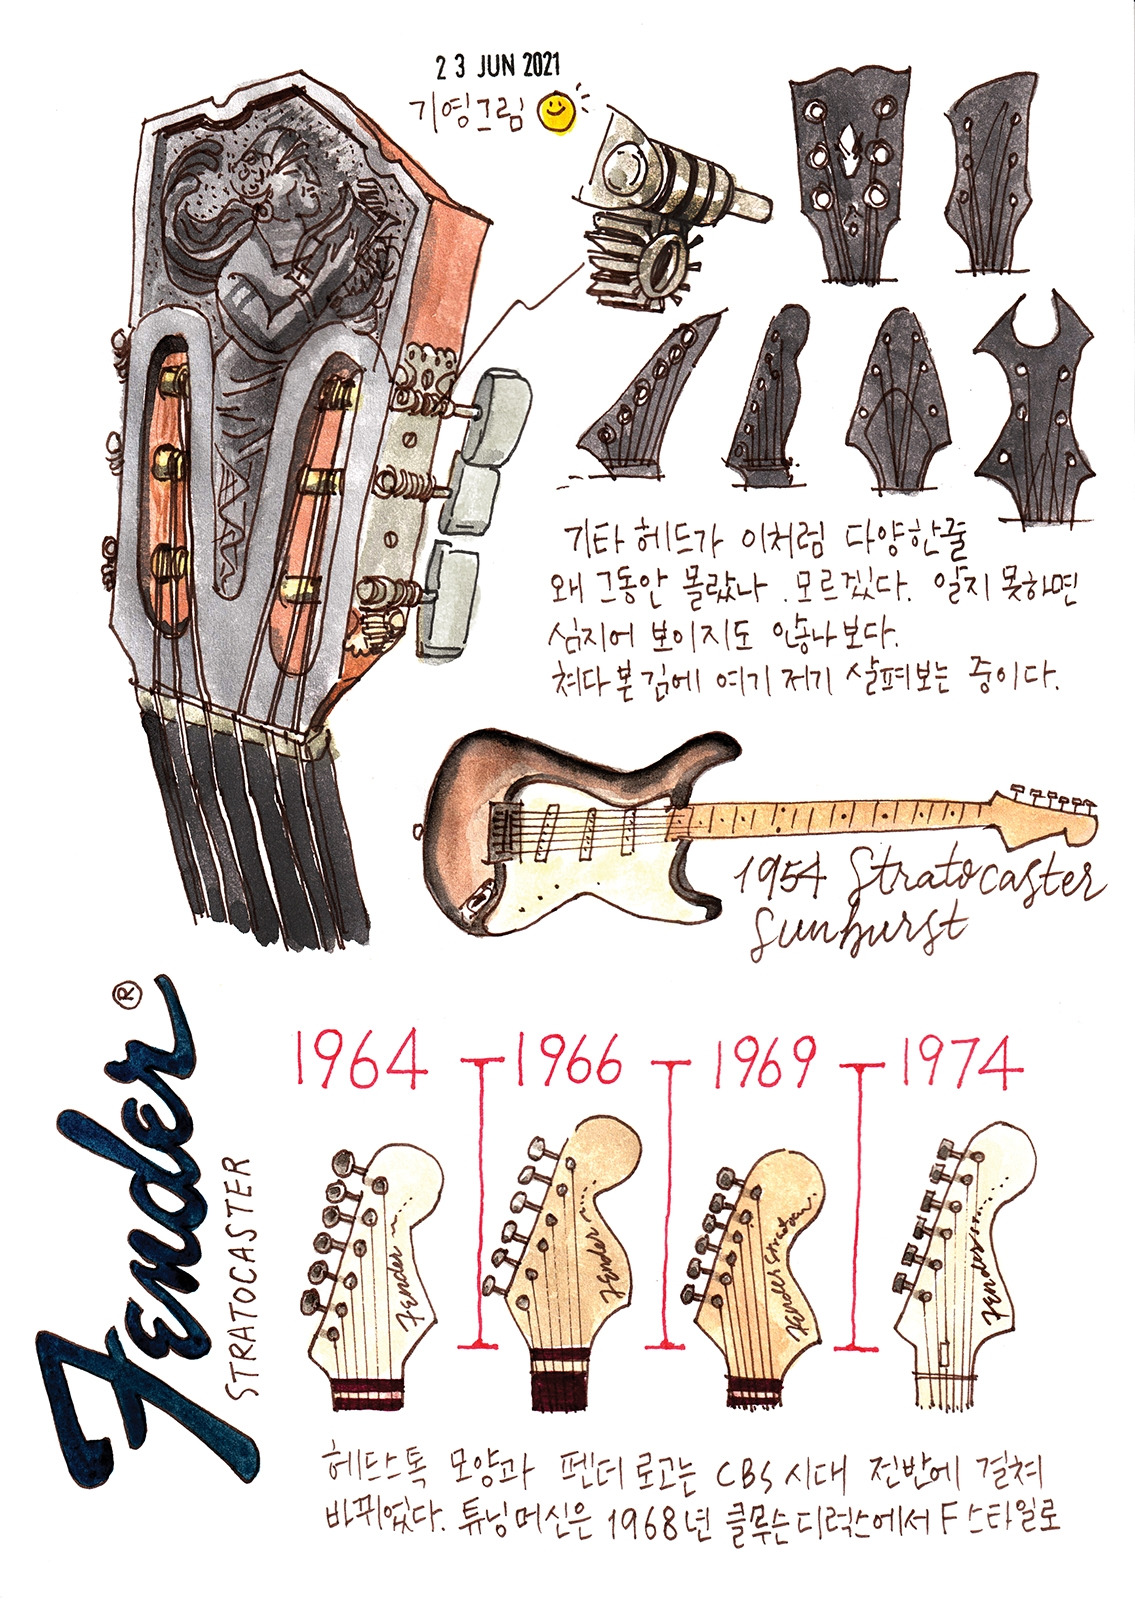 23 JUN 2021
기영그림
기타 헤드가 이처럼 다양한줄
왜 그동안 몰랐나 . 모르겠다. 알지 못하면
심지어 보이지도 않나보다.
쳐다본김에 여기 저기 살펴보는 중이다.
1954 Stratocaster
Sunburst
Fender ®
STRATOCASTER
1964 1966 1969 1974
Fender
Fender
Fender Stratocaster
Fender
헤드스톡 모양과 펜더 로고는 CBS 시대 전반에 걸쳐
바뀌었다. 튜닝머신은 1968년 클루슨디럭스에서 F 스타일로